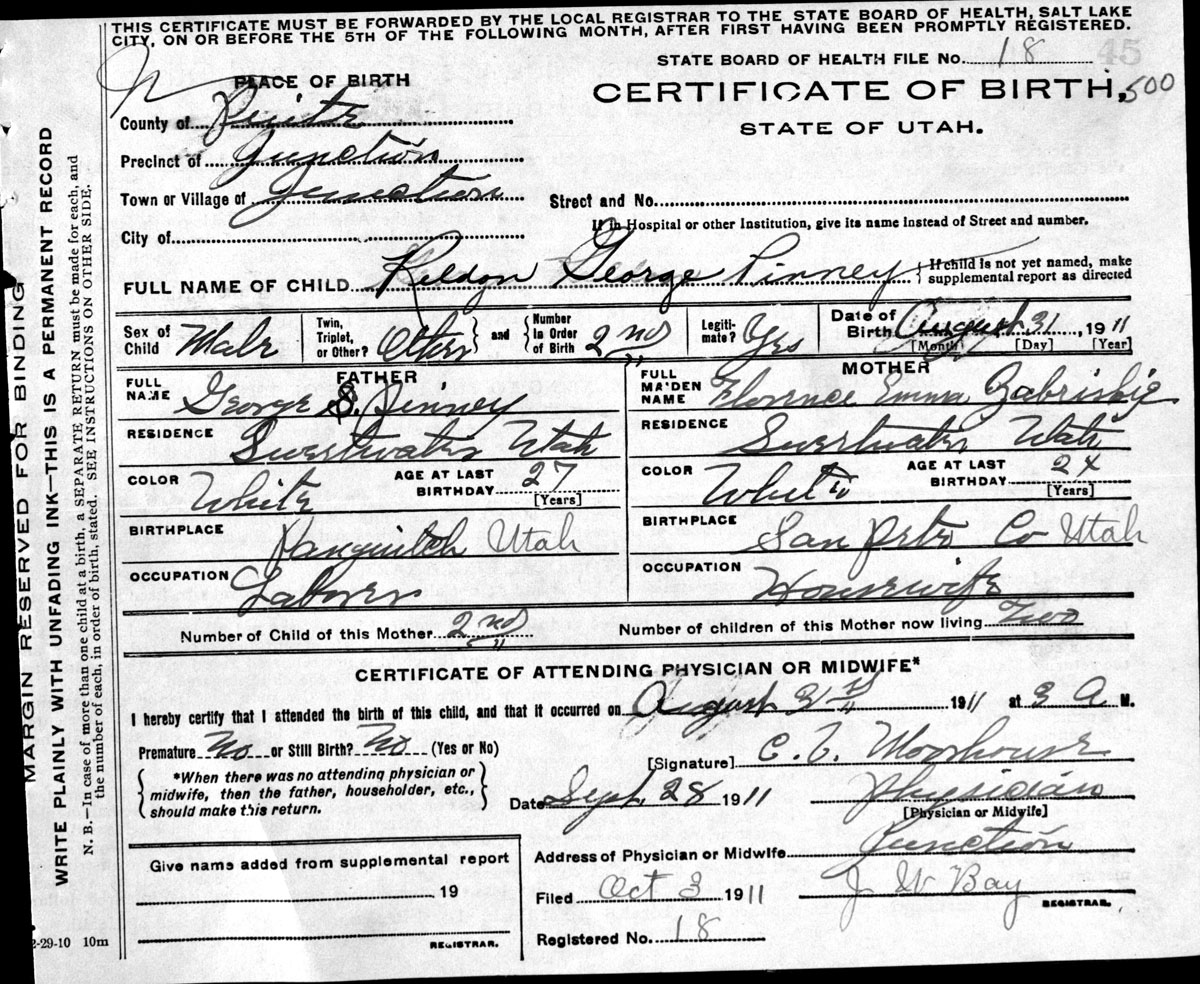 THIS CERTIFICATE MUST BE FORWARDED BY THE LOCAL REGISTRAR TO THE STATE BOARD OF HEALTH, SALT LAKE
CITY, ON OR BEFORE THE 5TH OF THE FOLLOWING MONTH, AFTER FIRST HAVING BEEN PROMPTLY REGISTERED.
45
STATE BOARD OF HEALTH FILE No. 18
PLACE OF BIRTH
CERTIFICATE OF BIRTH. 500
STATE OF UTAH.
County of Piuite
Precinct of Junction
Town or Village of Junction
Street and No.
If in Hospital or other Institution, give its name instead of Street and number.
City of
FULL NAME OF CHILD Reldon George Pinney { If child is not yet named, make
supplemental report as directed
Sex of Child Male
Twin, Triplet, or Other? Other } and { Number in Order of Birth 2nd
Legiti-mate? Yes
Date of Birth August 31, 1911
[Month] [Day] [Year]
FATHER
FULL NAME George S. Pinney
RESIDENCE Sweetwater Utah
COLOR White AGE AT LAST BIRTHDAY 27 [Years]
BIRTHPLACE Panguitch Utah
OCCUPATION Laborer
MOTHER
FULL MAIDEN NAME Florence Emma Zabriskie
RESIDENCE Sweetwater Utah
COLOR White AGE AT LAST BIRTHDAY 24 [Years]
BIRTHPLACE San Pete Co Utah
OCCUPATION Housewife
Number of Child of this Mother 2nd
Number of children of this Mother now living Two
CERTIFICATE OF ATTENDING PHYSICIAN OR MIDWIFE*
I hereby certify that I attended the birth of this child, and that it occurred on August 31st 1911 at 3 A M.
Premature No or Still Birth? No (Yes or No)
[Signature] C. E. Moorhouse
{ *When there was no attending physician or
midwife, then the father, householder, etc.,
should make this return. }
Date Sept 28 1911
Physician
[Physician or Midwife]
Give name added from supplemental report
19
REGISTRAR.
Address of Physician or Midwife Junction
Filed Oct 3 1911 J W Bay
REGISTRAR.
Registered No. 18
2-29-10 10m
MARGIN RESERVED FOR BINDING
WRITE PLAINLY WITH UNFADING INK—THIS IS A PERMANENT RECORD
N. B.—In case of more than one child at a birth, a SEPARATE RETURN must be made for each, and
the number of each, in order of birth, stated. SEE INSTRUCTIONS ON OTHER SIDE.